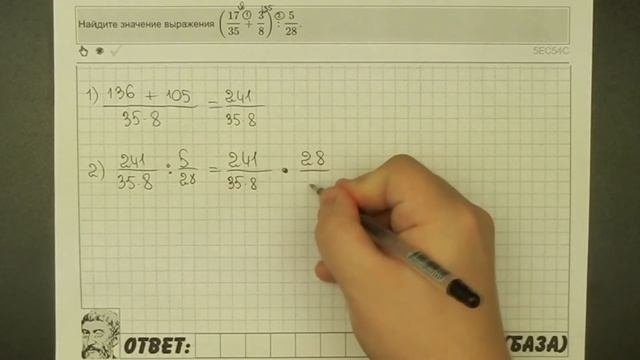 Найдите значение выражения (17/35 + 3/8) : 5/28.
5EC54C
1) (136 + 105)/(35·8) = 241/(35·8)
2) 241/(35·8) : 5/28 = 241/(35·8) · 28/
ОТВЕТ: (БАЗА)